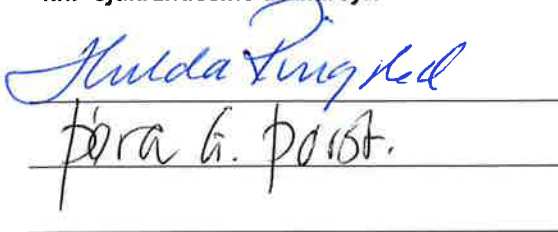 Hulda Ringsted
Þóra G. Þorst.